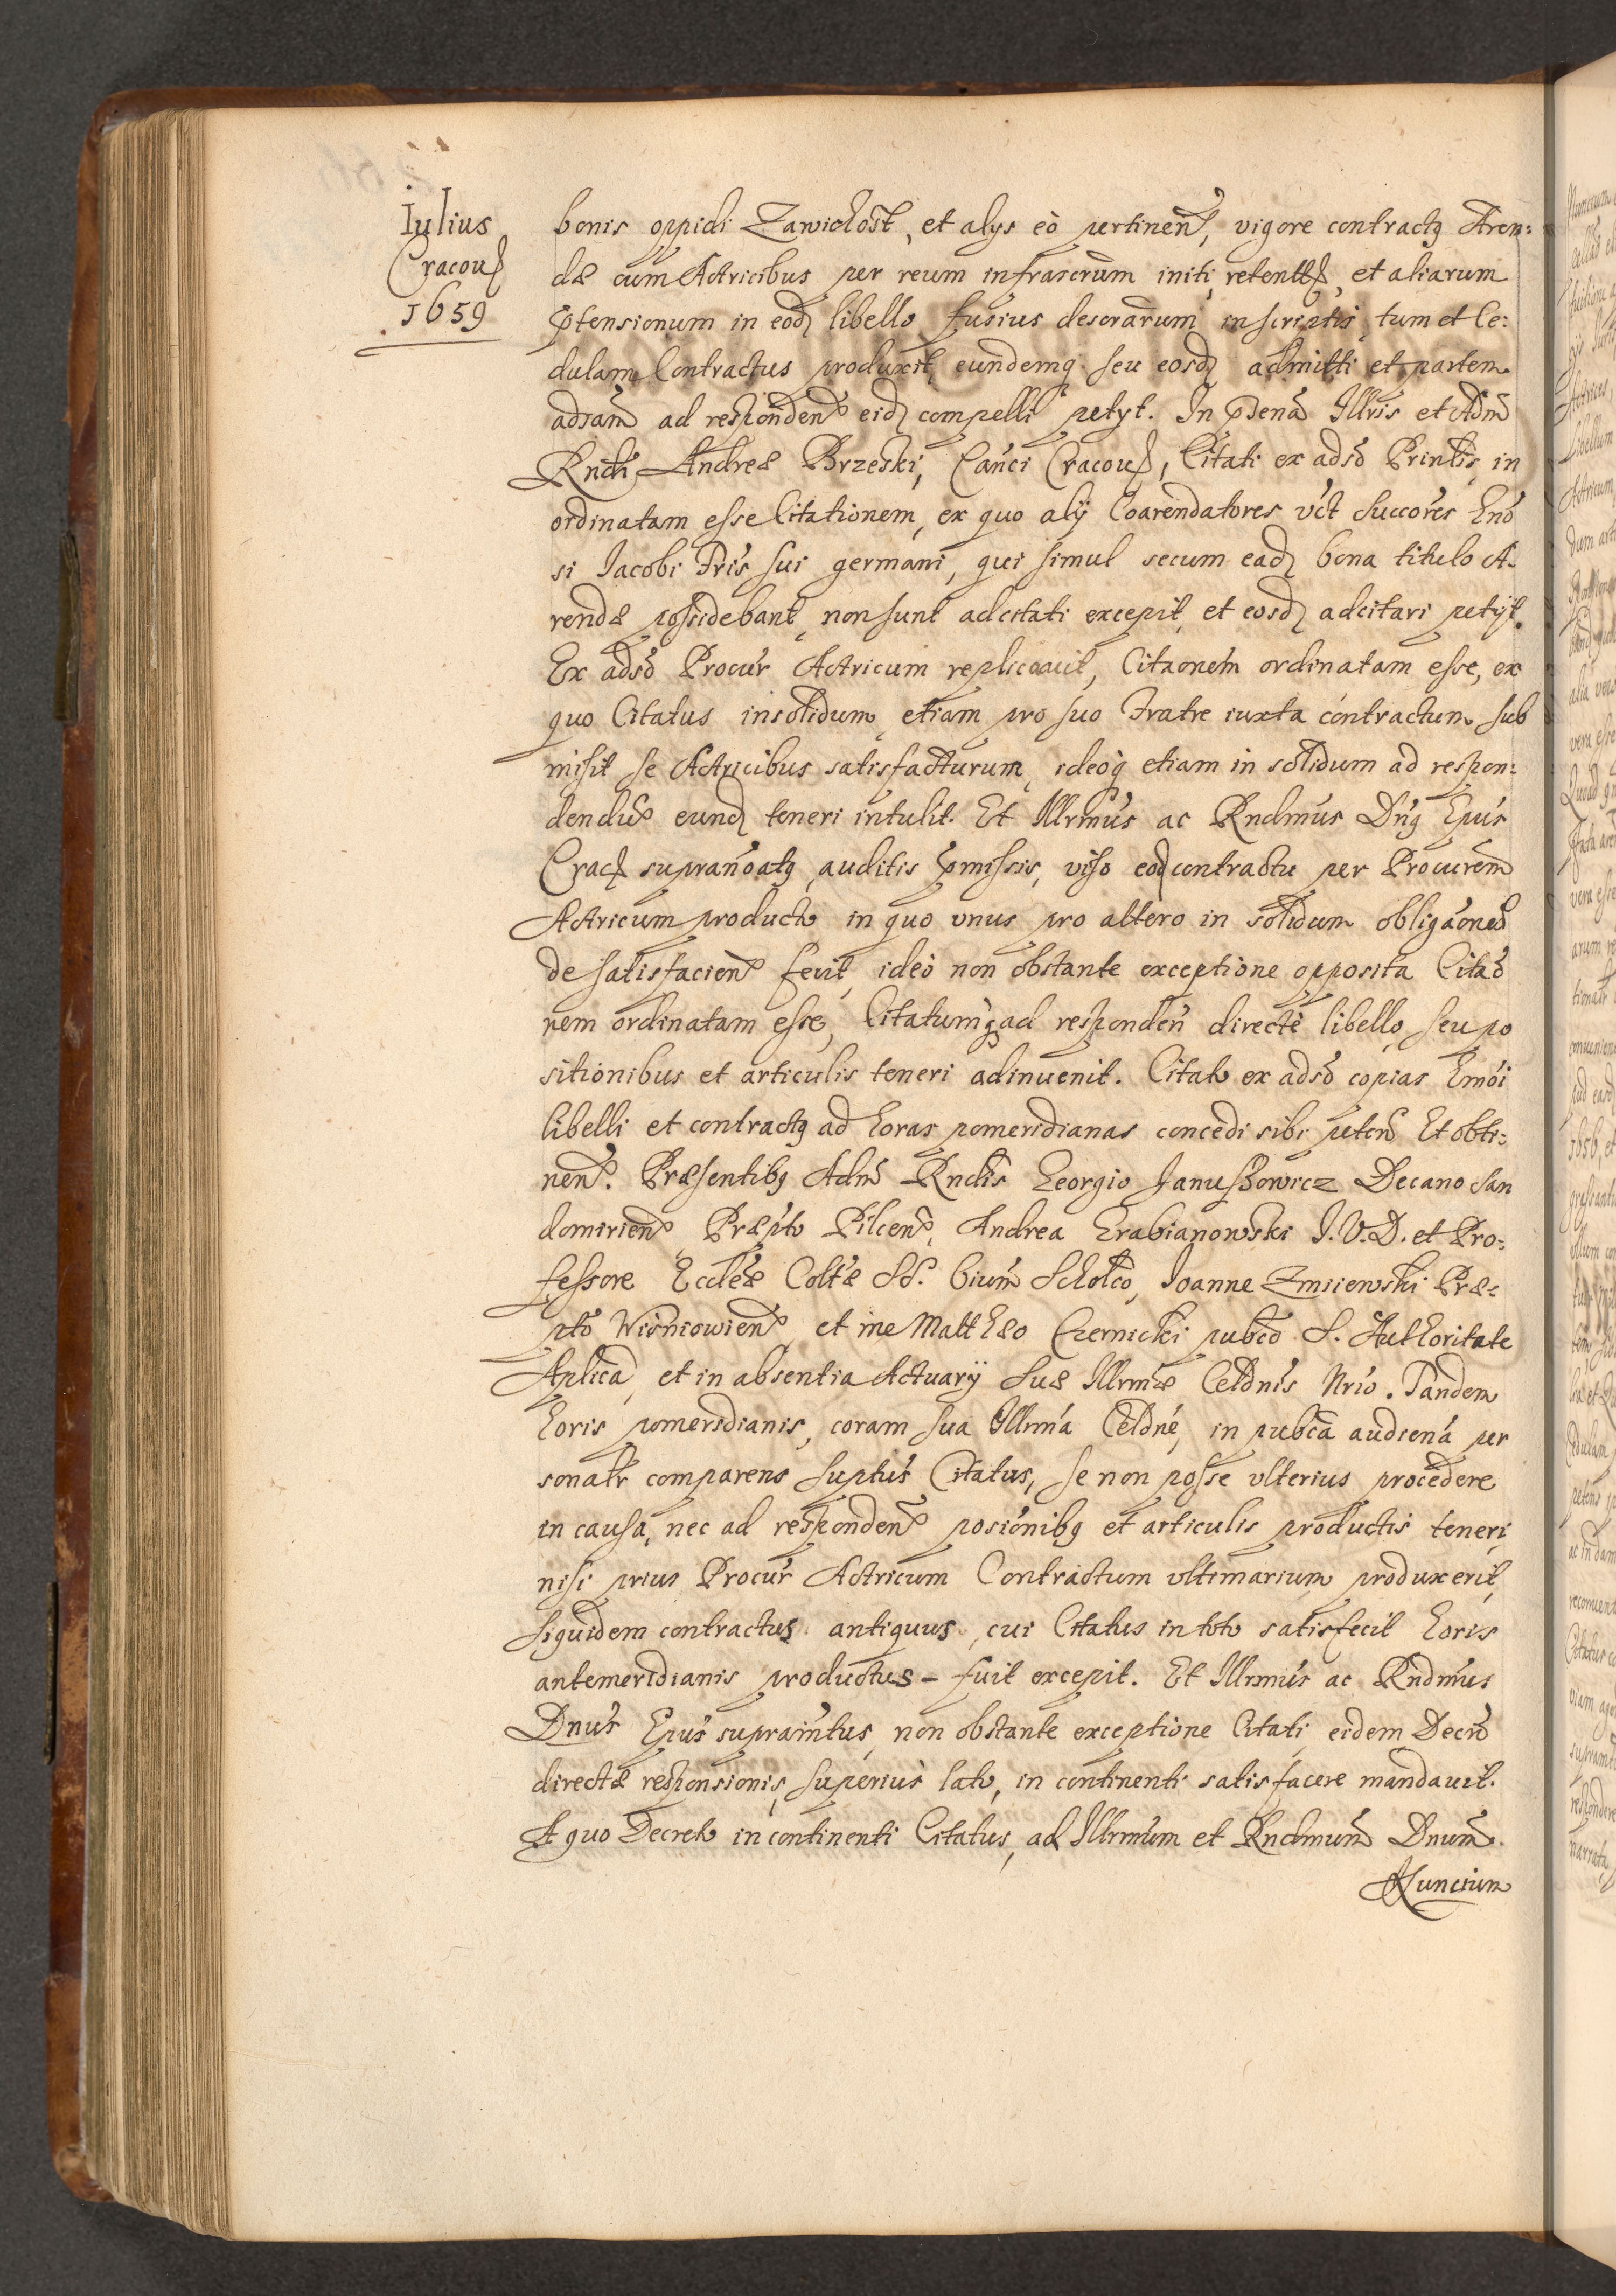 Iulius
Cracou
1659
bonis oppidi Zawichost, et alys eò pertinen, vigore contractq Aren:
dæ cum Actricibus per reum infrascrūm initi, retent, et aliarum
ptensionum in eod libello fusius descrārum in scriptis, tum et Ce:
dulam Contractus produxit, eundemq seu eosd admitti et partem
adsam ad responden eid compelli petyt. In pdena Illris et Adm
Rndi Andreæ Brzeski, Canci Cracou, Citati ex adso Printis, in
ordinatam esse Citationem, ex quo alÿ Coarendatores vct Succores Eno
si Iacobi Fris sui germani, qui simul secum ead bona titulo A-
rendæ possidebant, non sunt adcitati excepit, et eosd adcitari petÿt.
Ex adso Procur Actricum replicauit, Citaonem ordinatam esse, ex
quo Citatus insolidum, etiam pro suo Fratre iuxta contractum sub
misit se Actricibus satisfacturum, ideoq etiam in solidum ad respon:
dendu eund teneri intulit. Et Illrmus ac Rndmus Dnq Epus
Crac supranoatq, auditis pmissis, viso eod contractu per Procurem
Actricum producto in quo vnus pro altero in solidum obligaoned
de satisfacien fecit, ideò non obstante exceptione opposita Citao
nem ordinatam esse, Citatumq ad responden directè libello seu po
sitionibus et articulis teneri adinuenit. Citato ex adso copias Emoi
libelli et contractq ad horas pomeridianas concedi sibi peten Et obti:
nen. Præsentibq Adm Rndis Georgio Januszowicz Decano San
domirien Præpto Pilcen, Andrea Grabianowski I.V.D. et Pro:
fessore Ecclēæ Coltæ SS. Oium Scholco, Ioanne Zmiiewski Præ-
pto Wisniowien, et me Matthæo Czernicki pubco S. Authoritate
Aplica, et in absentia Actuarÿ Suæ Illrmæ Celdnis Nrio. Tandem
horis pomeridianis, coram sua Illrma Celdne, in pubca audiena per
sonatr comparens suptus Citatus, se non posse vlterius procedere
in causa, nec ad responden posionibq et articulis productis teneri
nisi prius Procur Actricum Contractum vltimarium produxerit,
siquidem contractus antiquus, cui Citatus in toto satisfecit horis
antemeridianis productus – fuit excepit. Et Illrmus ac Rndmus
Dnus Epus supraintus, non obstante exceptione Citati, eidem Decro
directæ responsionis, superius lato, in continenti satisfacere mandauit.
A quo Decreto in continenti Citatus, ad Illrmum et Rndmum Dnum.
Nuncium